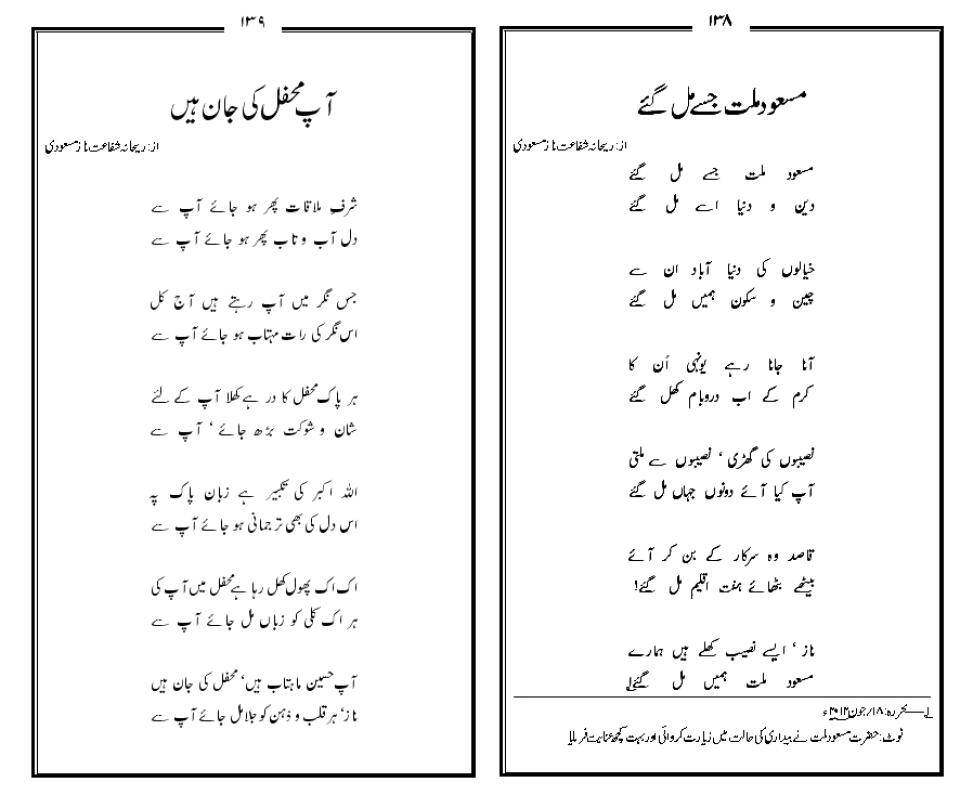 ۱۳۸
مسعود ملت جسے مل گئے
از: ریحانہ شفاعت ناز مسعودی
مسعود ملت جسے مل گئے
دین و دنیا اسے مل گئے
خیالوں کی دنیا آباد ان سے
چین و سکون ہمیں مل گئے
آنا جانا رہے یونہی اُن کا
کرم کے اب دروبام کھل گئے
نصیبوں کی گھڑی ‘ نصیبوں سے ملتی
آپ کیا آئے دونوں جہاں مل گئے
قاصد وہ سرکار کے بن کر آئے
بیٹھے بٹھائے ہفت اقلیم مل گئے!
ناز ‘ ایسے نصیب کھلے ہیں ہمارے
مسعود ملت ہمیں مل گئے!
۱؎ تحریرہ: ۱۸/جون ۲۰۱۲ء
نوٹ: حضرت مسعود ملت نے بیداری کی حالت میں زیارت کروائی اور بہت کچھ عنایت فرمایا
۱۳۹
آپ محفل کی جان ہیں
از: ریحانہ شفاعت ناز مسعودی
شرفِ ملاقات پھر ہو جائے آپ سے
دل آب و تاب پھر ہو جائے آپ سے
جس نگر میں آپ رہتے ہیں آج کل
اس نگر کی رات مہتاب ہو جائے آپ سے
ہر پاک محفل کا در ہے کھلا آپ کے لئے
شان و شوکت بڑھ جائے ‘ آپ سے
اللہ اکبر کی تکبیر ہے زبان پاک پہ
اس دل کی بھی ترجمانی ہو جائے آپ سے
اک اک پھول کھل رہا ہے محفل میں آپ کی
ہر اک کلی کو زباں مل جائے آپ سے
آپ حسین ماہتاب ہیں‘ محفل کی جان ہیں
ناز‘ ہر قلب و ذہن کو جلا مل جائے آپ سے